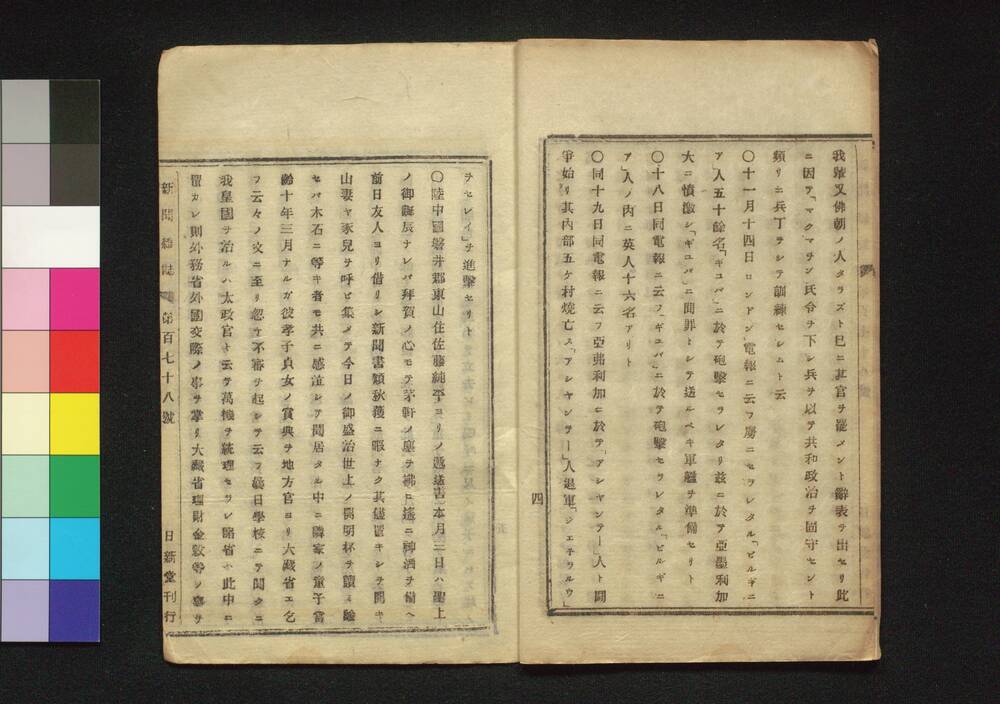 我雖又佛朝ノ人タラズト巳ニ其官ヲ罷メント辭表ヲ出セリ此
ニ因テ「マクマヲン氏令ヲ下シ兵ヲ以テ共和政治ヲ固守セント
頻リニ兵丁ヲシテ訓練セシムト云
〇十一月十四日ロンドン電報ニ云フ虜ニセラレタル「ビルギニ
ア」人五十餘名「ギユバ」ニ於テ砲擊セラレタリ茲ニ於テ亞墨利加
大ニ憤激シ「ギユバ」ニ問罪トシテ送ルベキ軍艦ヲ準備セリト
〇十八日同電報ニ云フ「ギユバ」ニ於テ砲擊セラレタル「ビルギニ
ア」人ノ内ニ英人十六名アリト
〇同十九日同電報ニ云フ亞弗利加ニ於テ「アシヤンテー」人ト鬪
爭始リ其內部五ケ村燒亡ス「アシヤンテー」人退軍「ジエチリルウ」
四
ヲセレイ」ヲ進擊セリト
〇陸中國磐井郡東山住佐藤純平ヨリノ遞送書ニ本月三日ハ聖上
ノ御誕辰ナレバ拜賀ノ心モテ茅軒ノ塵ヲ拂ヒ遙ニ神酒ヲ備ヘ
前日友人ヨリ借リシ新聞書類秋穫ニ暇ナク其儘置キシヲ開キ
山妻ヤ豕兒ヲ呼ビ集メテ今日ノ御盛治世上ノ開明杯ヲ讀ミ聽
セバ木石ニ等キ者モ共ニ感泣シテ閒居タル中ニ隣家ノ童子當
齡十年三月ナルガ彼孝子貞女ノ賞典ヲ地方官ヨリ大藏省エ乞
フ云々ノ文ニ至リ忽チ不審ヲ起シテ云フ義日學校ニテ聞クニ
我皇國ヲ治ルハ太政官ト云テ萬機ヲ統理セラレ諸省ハ此中ニ
置カレ則外務省外國交際ノ事ヲ掌リ大藏省理財金穀等ノ事ヲ
新聞雜誌 第百七十八號 日新堂刊行